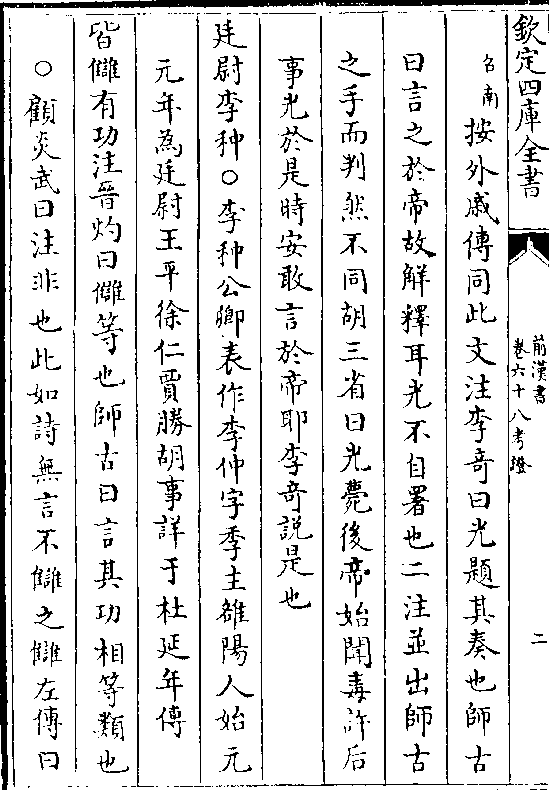 欽定四庫全書
前漢書
卷六十八考證
二
召南按外戚傳同此文注李奇曰光題其奏也師古
曰言之於帝故解釋耳光不自署也二注並出師古
之手而判然不同胡三省曰光薨後帝始聞毒許后
事光於是時安敢言於帝耶李奇説是也
廷尉李种○李种公卿表作李仲字季主雒陽人始元
元年為廷尉王平徐仁賈勝胡事詳于杜延年傳
皆讎有功注晉灼曰讎等也師古曰言其功相等類也
○顧炎武曰注非也此如詩無言不讎之讎左傳曰